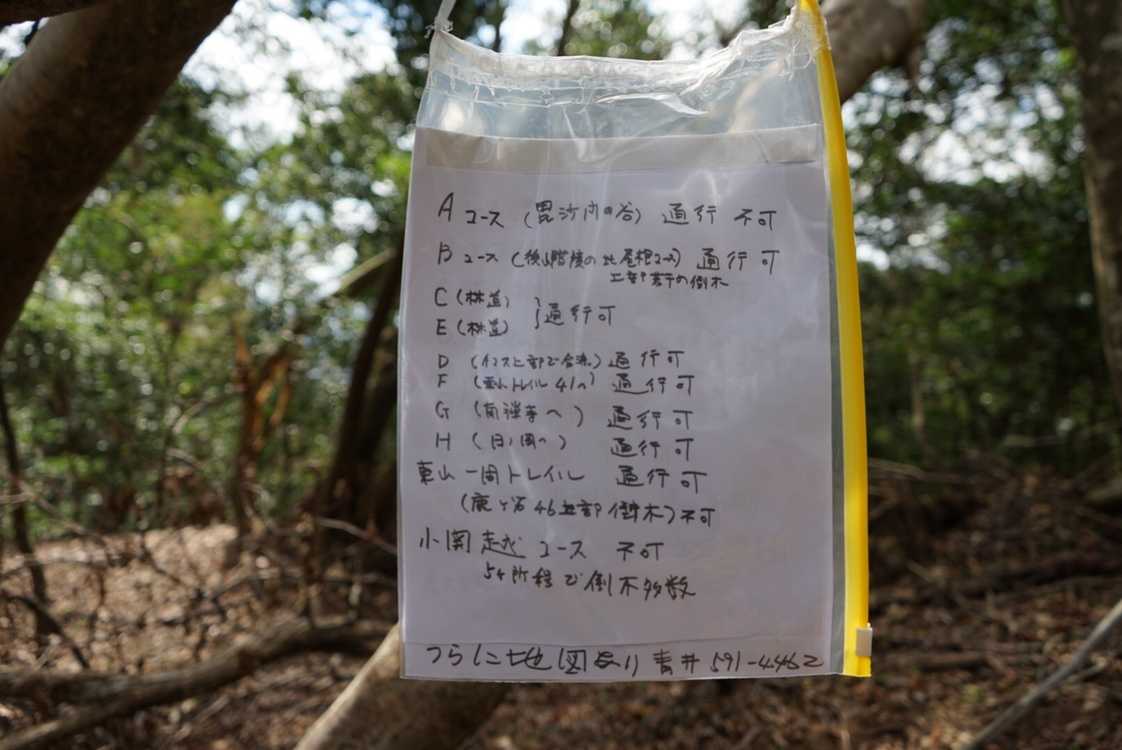 A コース (毘沙門の谷) 通行 不可
B コース (後山階陵の北尾根コース) 通行 可
上部 若干の倒木
C (林道)
E (林道) } 通行可
D (上部で合流) 通行可
F (トレイル 41へ) 通行可
G (南禅寺へ) 通行可
H (日ノ岡へ) 通行可
東山一周トレイル 通行可
(鹿ヶ谷 46 上部 倒木) 不可
小関越 コース 不可
54所程で倒木多数
うらに地図あり 青井 591-4462